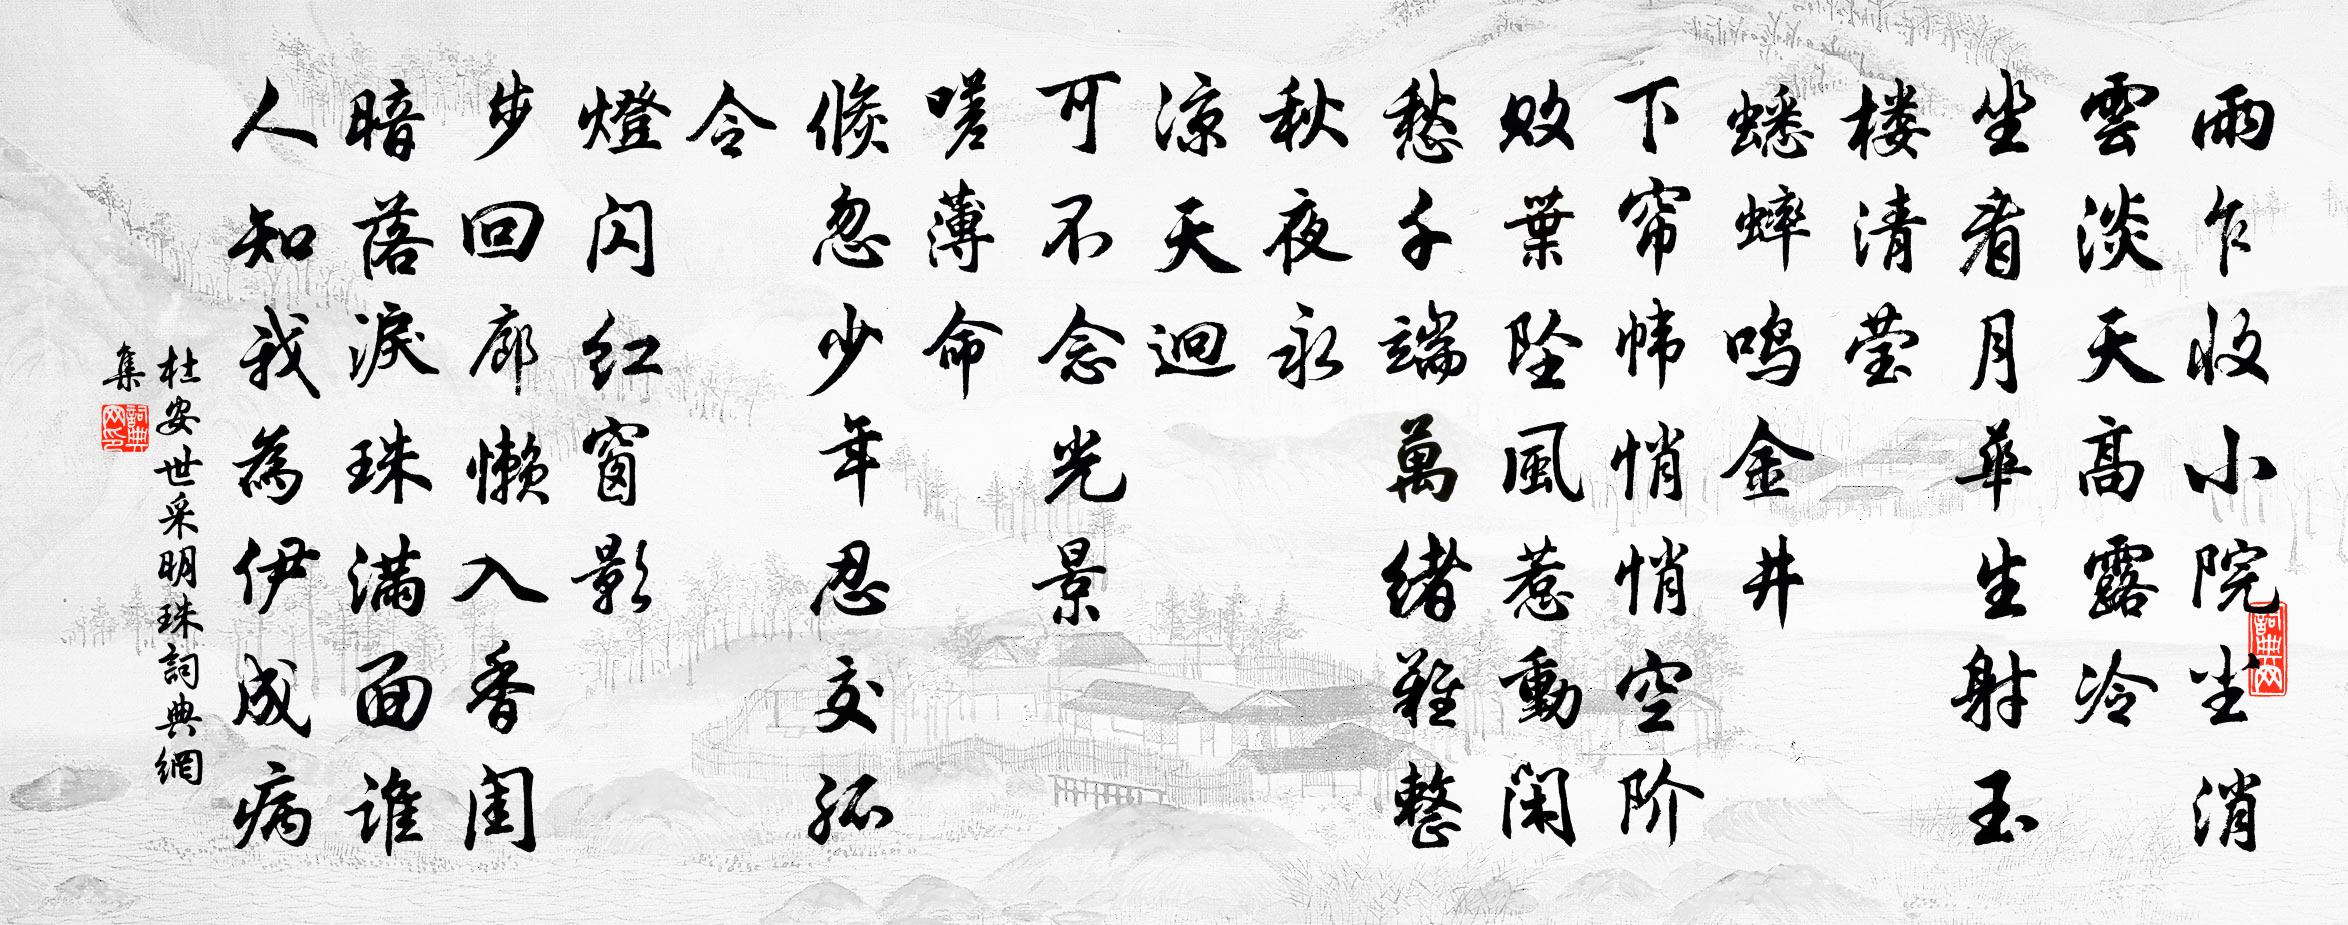 雨乍收小院尘消
雲淡天高露冷
坐看月華生射玉
楼清莹
蟋蟀鸣金井
下帘帏悄悄空阶
败葉坠風惹動闲
愁千端萬绪難整
秋夜永
凉天迥
可不念光景
嗟薄命
倏忽少年忍交孤
令
燈闪红窗影
步回廊懒入香闺
暗落淚珠满面谁
人知我為伊成病
杜安世采明珠詞典網
集
詞典网印
詞典网